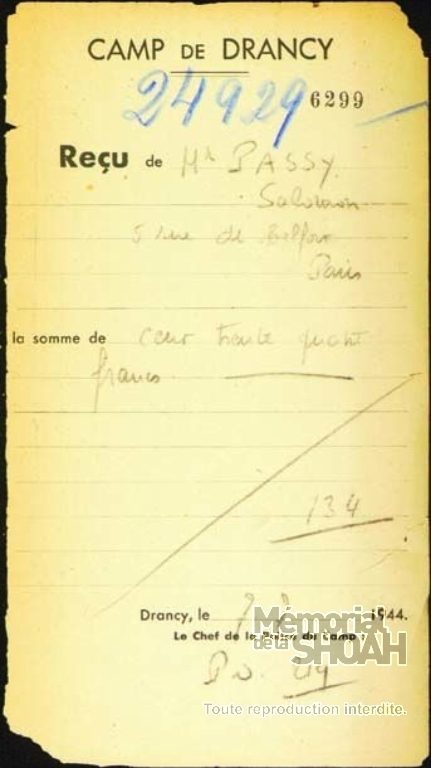 CAMP DE DRANCY
24929 6299
Reçu de Mr PASSY
Salomon
5 rue de Belfort
Paris
la somme de cent trente quatre
francs
134
Drancy, le 1944.
Le Chef de la Police du Camp :
Mémorial
de la SHOAH
Toute reproduction interdite.